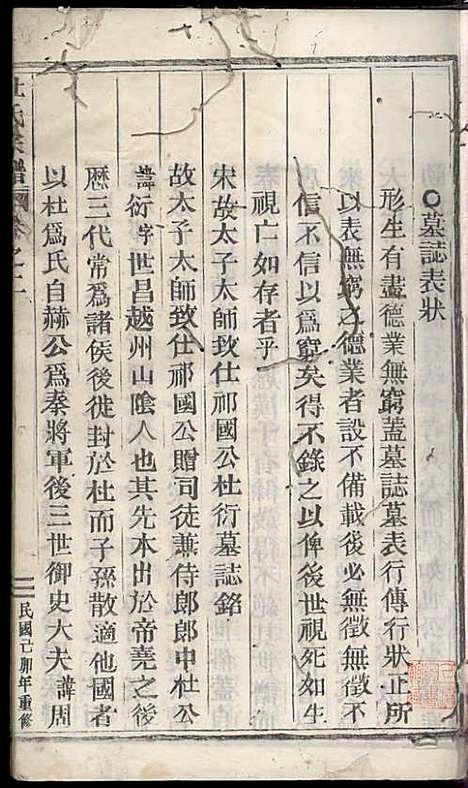 墓誌表狀
形生有盡德業無窮蓋墓誌墓表行傳行狀正所
以表無窮之德業者設不備載後必無徵無徵不
信不信以為窮矣得不錄之以俾後世視死如生
視亡如存者乎
宋故太子太師致仕祁國公杜衍墓誌銘
故太子太師致仕祁國公贈司徒兼侍郎郎中杜公
諱衍字世昌越州山陰人也其先本出於帝堯之後
歷三代常爲諸侯後徙封於杜而子孫散適他國者
以杜爲氏自赫公爲秦將軍後三世御史大夫諱周
杜氏宗譜 卷之二
二 民國己卯年重修